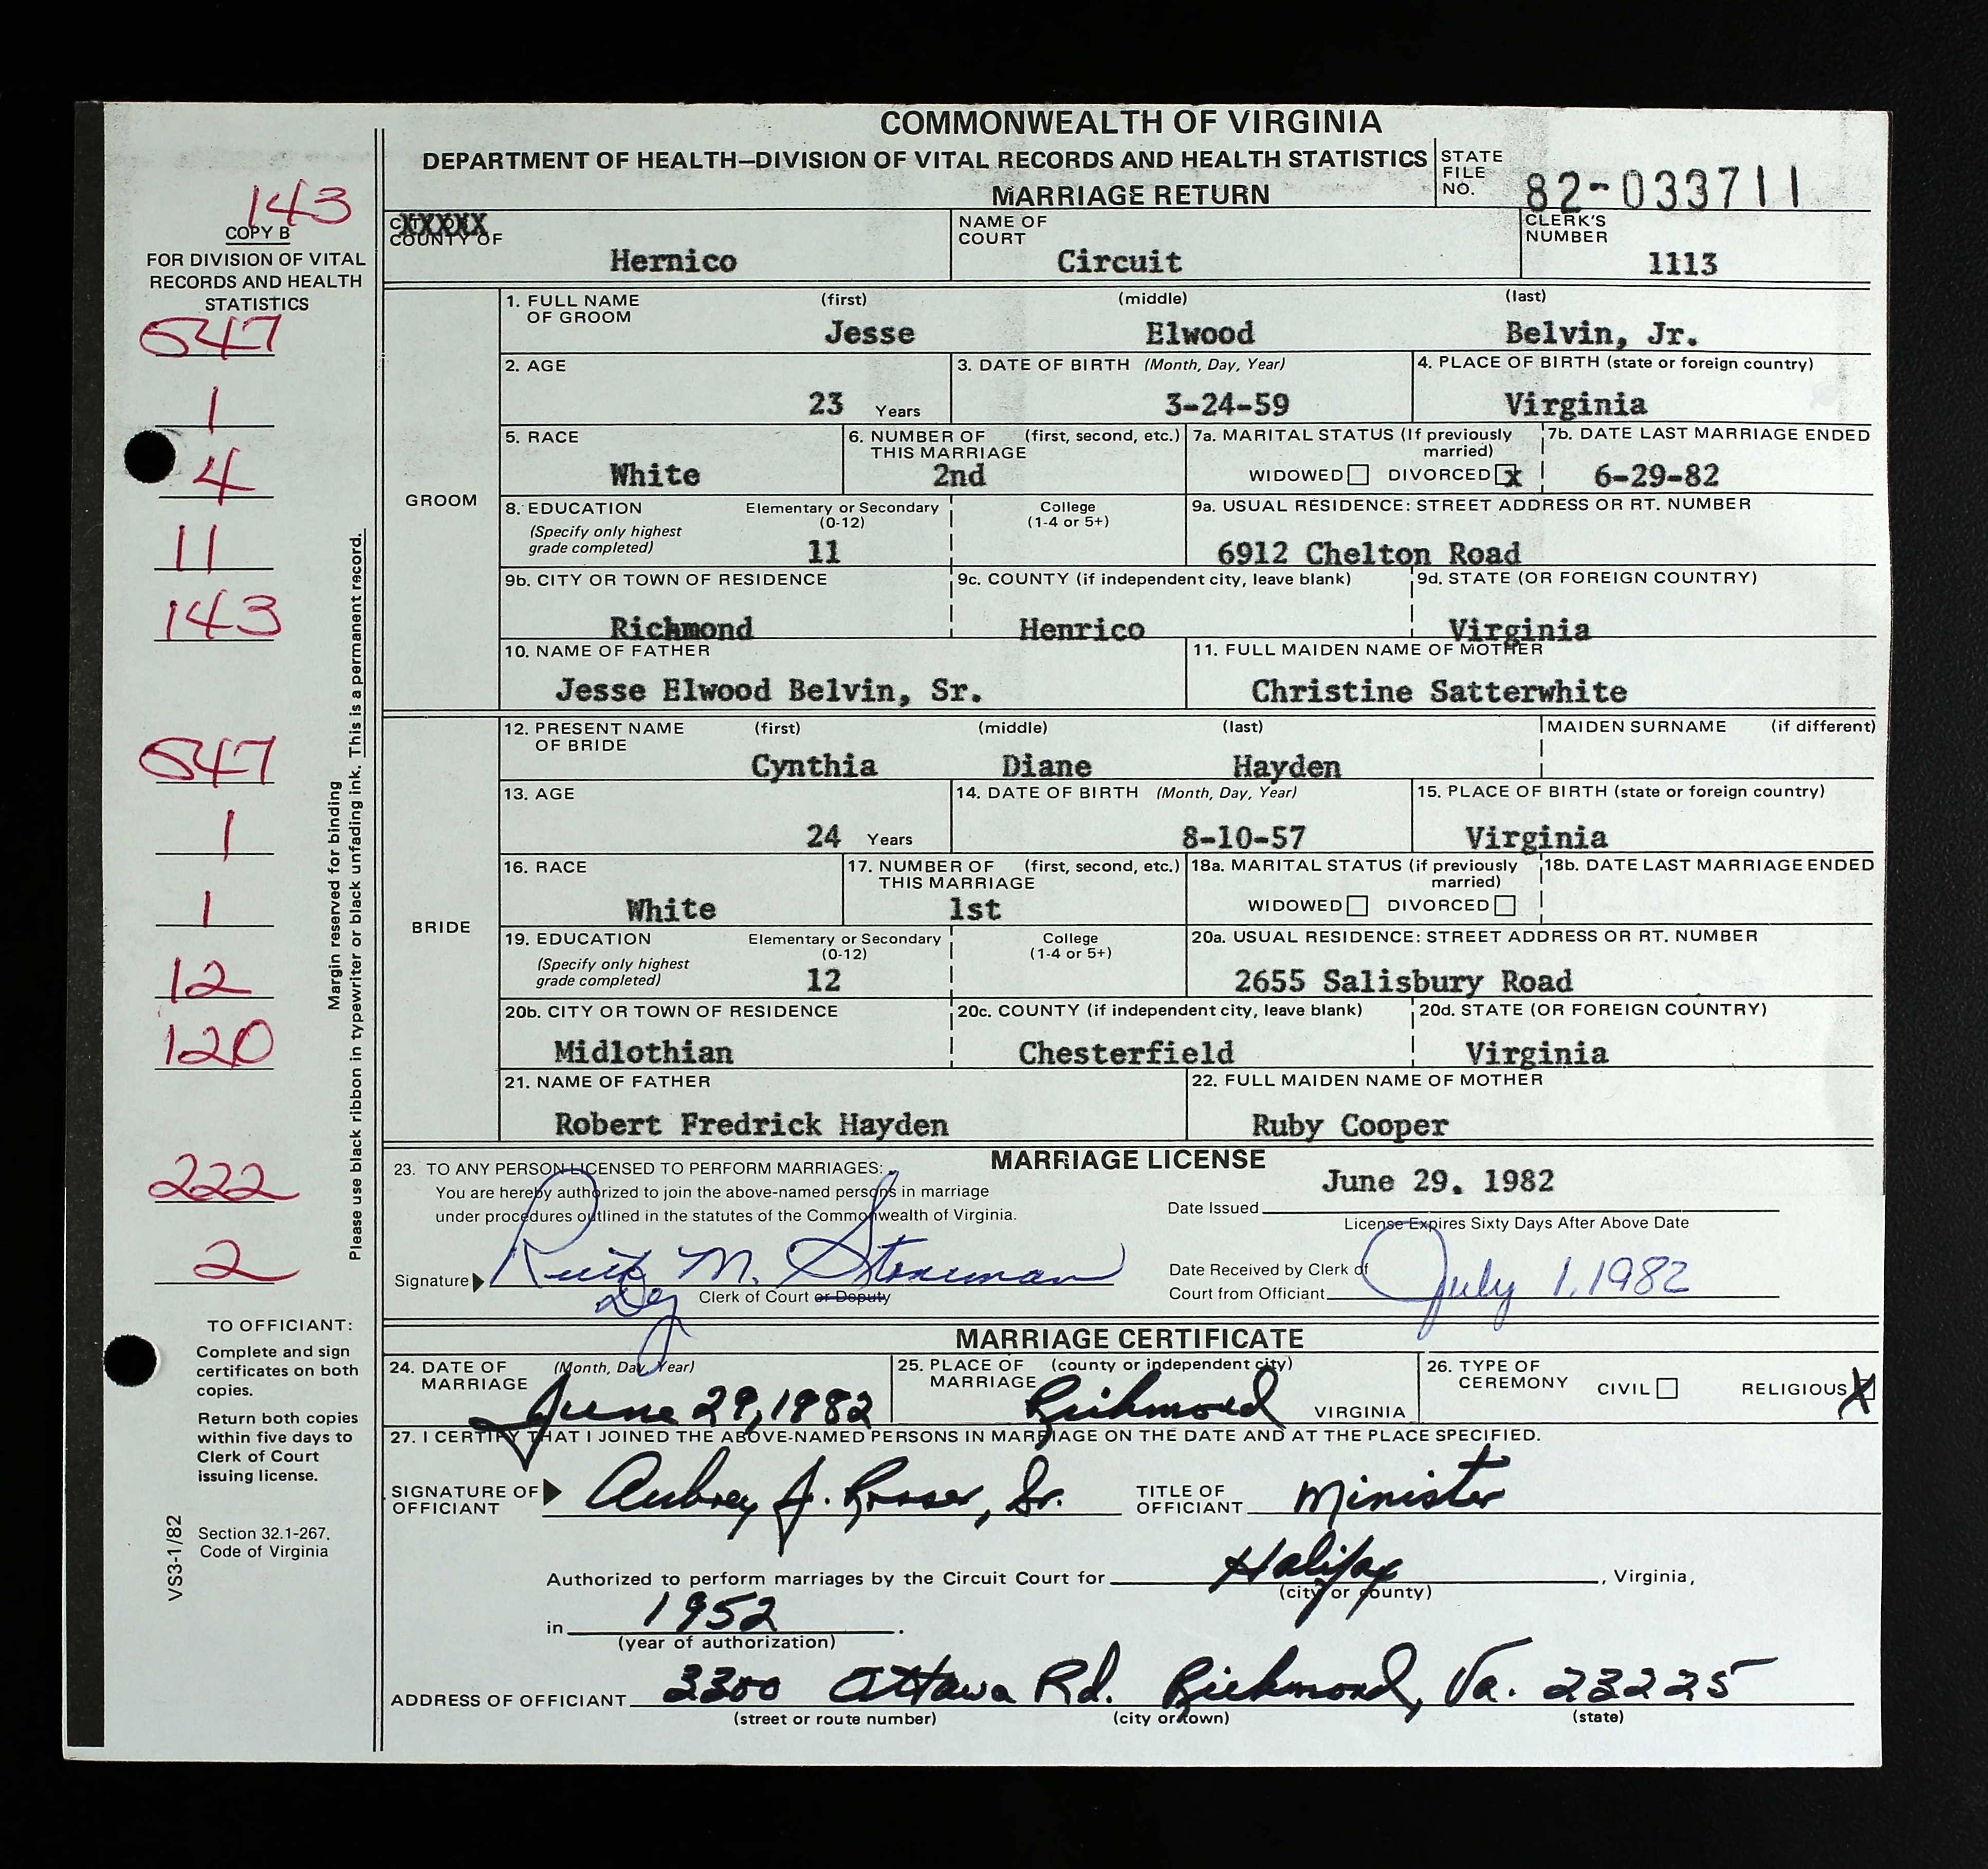 COMMONWEALTH OF VIRGINIA
DEPARTMENT OF HEALTH—DIVISION OF VITAL RECORDS AND HEALTH STATISTICS
MARRIAGE RETURN
STATE FILE NO. 82-033711
143
COPY B
FOR DIVISION OF VITAL
RECORDS AND HEALTH
STATISTICS
647
1
4
11
143
647
1
1
12
120
222
2
Margin reserved for binding
Please use black ribbon in typewriter or black unfading ink. This is a permanent record.
TO OFFICIANT:
Complete and sign
certificates on both
copies.
Return both copies
within five days to
Clerk of Court
issuing license.
Section 32.1-267,
Code of Virginia
VS3-1/82
XXXXX
COUNTY OF Hernico
NAME OF COURT Circuit
CLERK'S NUMBER 1113
GROOM
1. FULL NAME OF GROOM (first) (middle) (last)
Jesse Elwood Belvin, Jr.
2. AGE 23 Years
3. DATE OF BIRTH (Month, Day, Year) 3-24-59
4. PLACE OF BIRTH (state or foreign country) Virginia
5. RACE White
6. NUMBER OF THIS MARRIAGE (first, second, etc.) 2nd
7a. MARITAL STATUS (If previously married) WIDOWED DIVORCED x
7b. DATE LAST MARRIAGE ENDED 6-29-82
8. EDUCATION (Specify only highest grade completed) Elementary or Secondary (0-12) 11 College (1-4 or 5+)
9a. USUAL RESIDENCE: STREET ADDRESS OR RT. NUMBER 6912 Chelton Road
9b. CITY OR TOWN OF RESIDENCE Richmond
9c. COUNTY (if independent city, leave blank) Henrico
9d. STATE (OR FOREIGN COUNTRY) Virginia
10. NAME OF FATHER Jesse Elwood Belvin, Sr.
11. FULL MAIDEN NAME OF MOTHER Christine Satterwhite
BRIDE
12. PRESENT NAME OF BRIDE (first) (middle) (last) MAIDEN SURNAME (if different)
Cynthia Diane Hayden
13. AGE 24 Years
14. DATE OF BIRTH (Month, Day, Year) 8-10-57
15. PLACE OF BIRTH (state or foreign country) Virginia
16. RACE White
17. NUMBER OF THIS MARRIAGE (first, second, etc.) 1st
18a. MARITAL STATUS (if previously married) WIDOWED DIVORCED
18b. DATE LAST MARRIAGE ENDED
19. EDUCATION (Specify only highest grade completed) Elementary or Secondary (0-12) 12 College (1-4 or 5+)
20a. USUAL RESIDENCE: STREET ADDRESS OR RT. NUMBER 2655 Salisbury Road
20b. CITY OR TOWN OF RESIDENCE Midlothian
20c. COUNTY (if independent city, leave blank) Chesterfield
20d. STATE (OR FOREIGN COUNTRY) Virginia
21. NAME OF FATHER Robert Fredrick Hayden
22. FULL MAIDEN NAME OF MOTHER Ruby Cooper
MARRIAGE LICENSE
23. TO ANY PERSON LICENSED TO PERFORM MARRIAGES:
You are hereby authorized to join the above-named persons in marriage
under procedures outlined in the statutes of the Commonwealth of Virginia.
Date Issued June 29, 1982
License Expires Sixty Days After Above Date
Signature Ruth M. Stoneman
Clerk of Court or Deputy
Date Received by Clerk of
Court from Officiant July 1, 1982
MARRIAGE CERTIFICATE
24. DATE OF MARRIAGE (Month, Day, Year) June 29, 1982
25. PLACE OF MARRIAGE (county or independent city) Richmond VIRGINIA
26. TYPE OF CEREMONY CIVIL RELIGIOUS X
27. I CERTIFY THAT I JOINED THE ABOVE-NAMED PERSONS IN MARRIAGE ON THE DATE AND AT THE PLACE SPECIFIED.
SIGNATURE OF OFFICIANT Aubrey J. Rosser, Sr. TITLE OF OFFICIANT Minister
Authorized to perform marriages by the Circuit Court for Halifax, Virginia,
(city or county)
in 1952.
(year of authorization)
ADDRESS OF OFFICIANT 3300 Ottawa Rd. Richmond, Va. 23225
(street or route number) (city or town) (state)